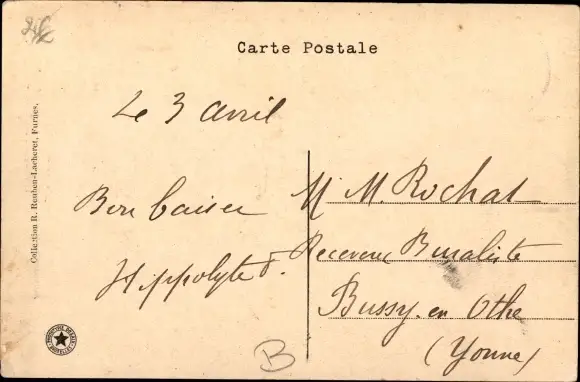 Carte Postale
Le 3 avril
Bon baiser
Hippolyte
M M. Rochat
Receveur Buraliste
Bussy-en Othe
(Yonne)
B
Collection R. Reuben-Lacheret, Furnes.